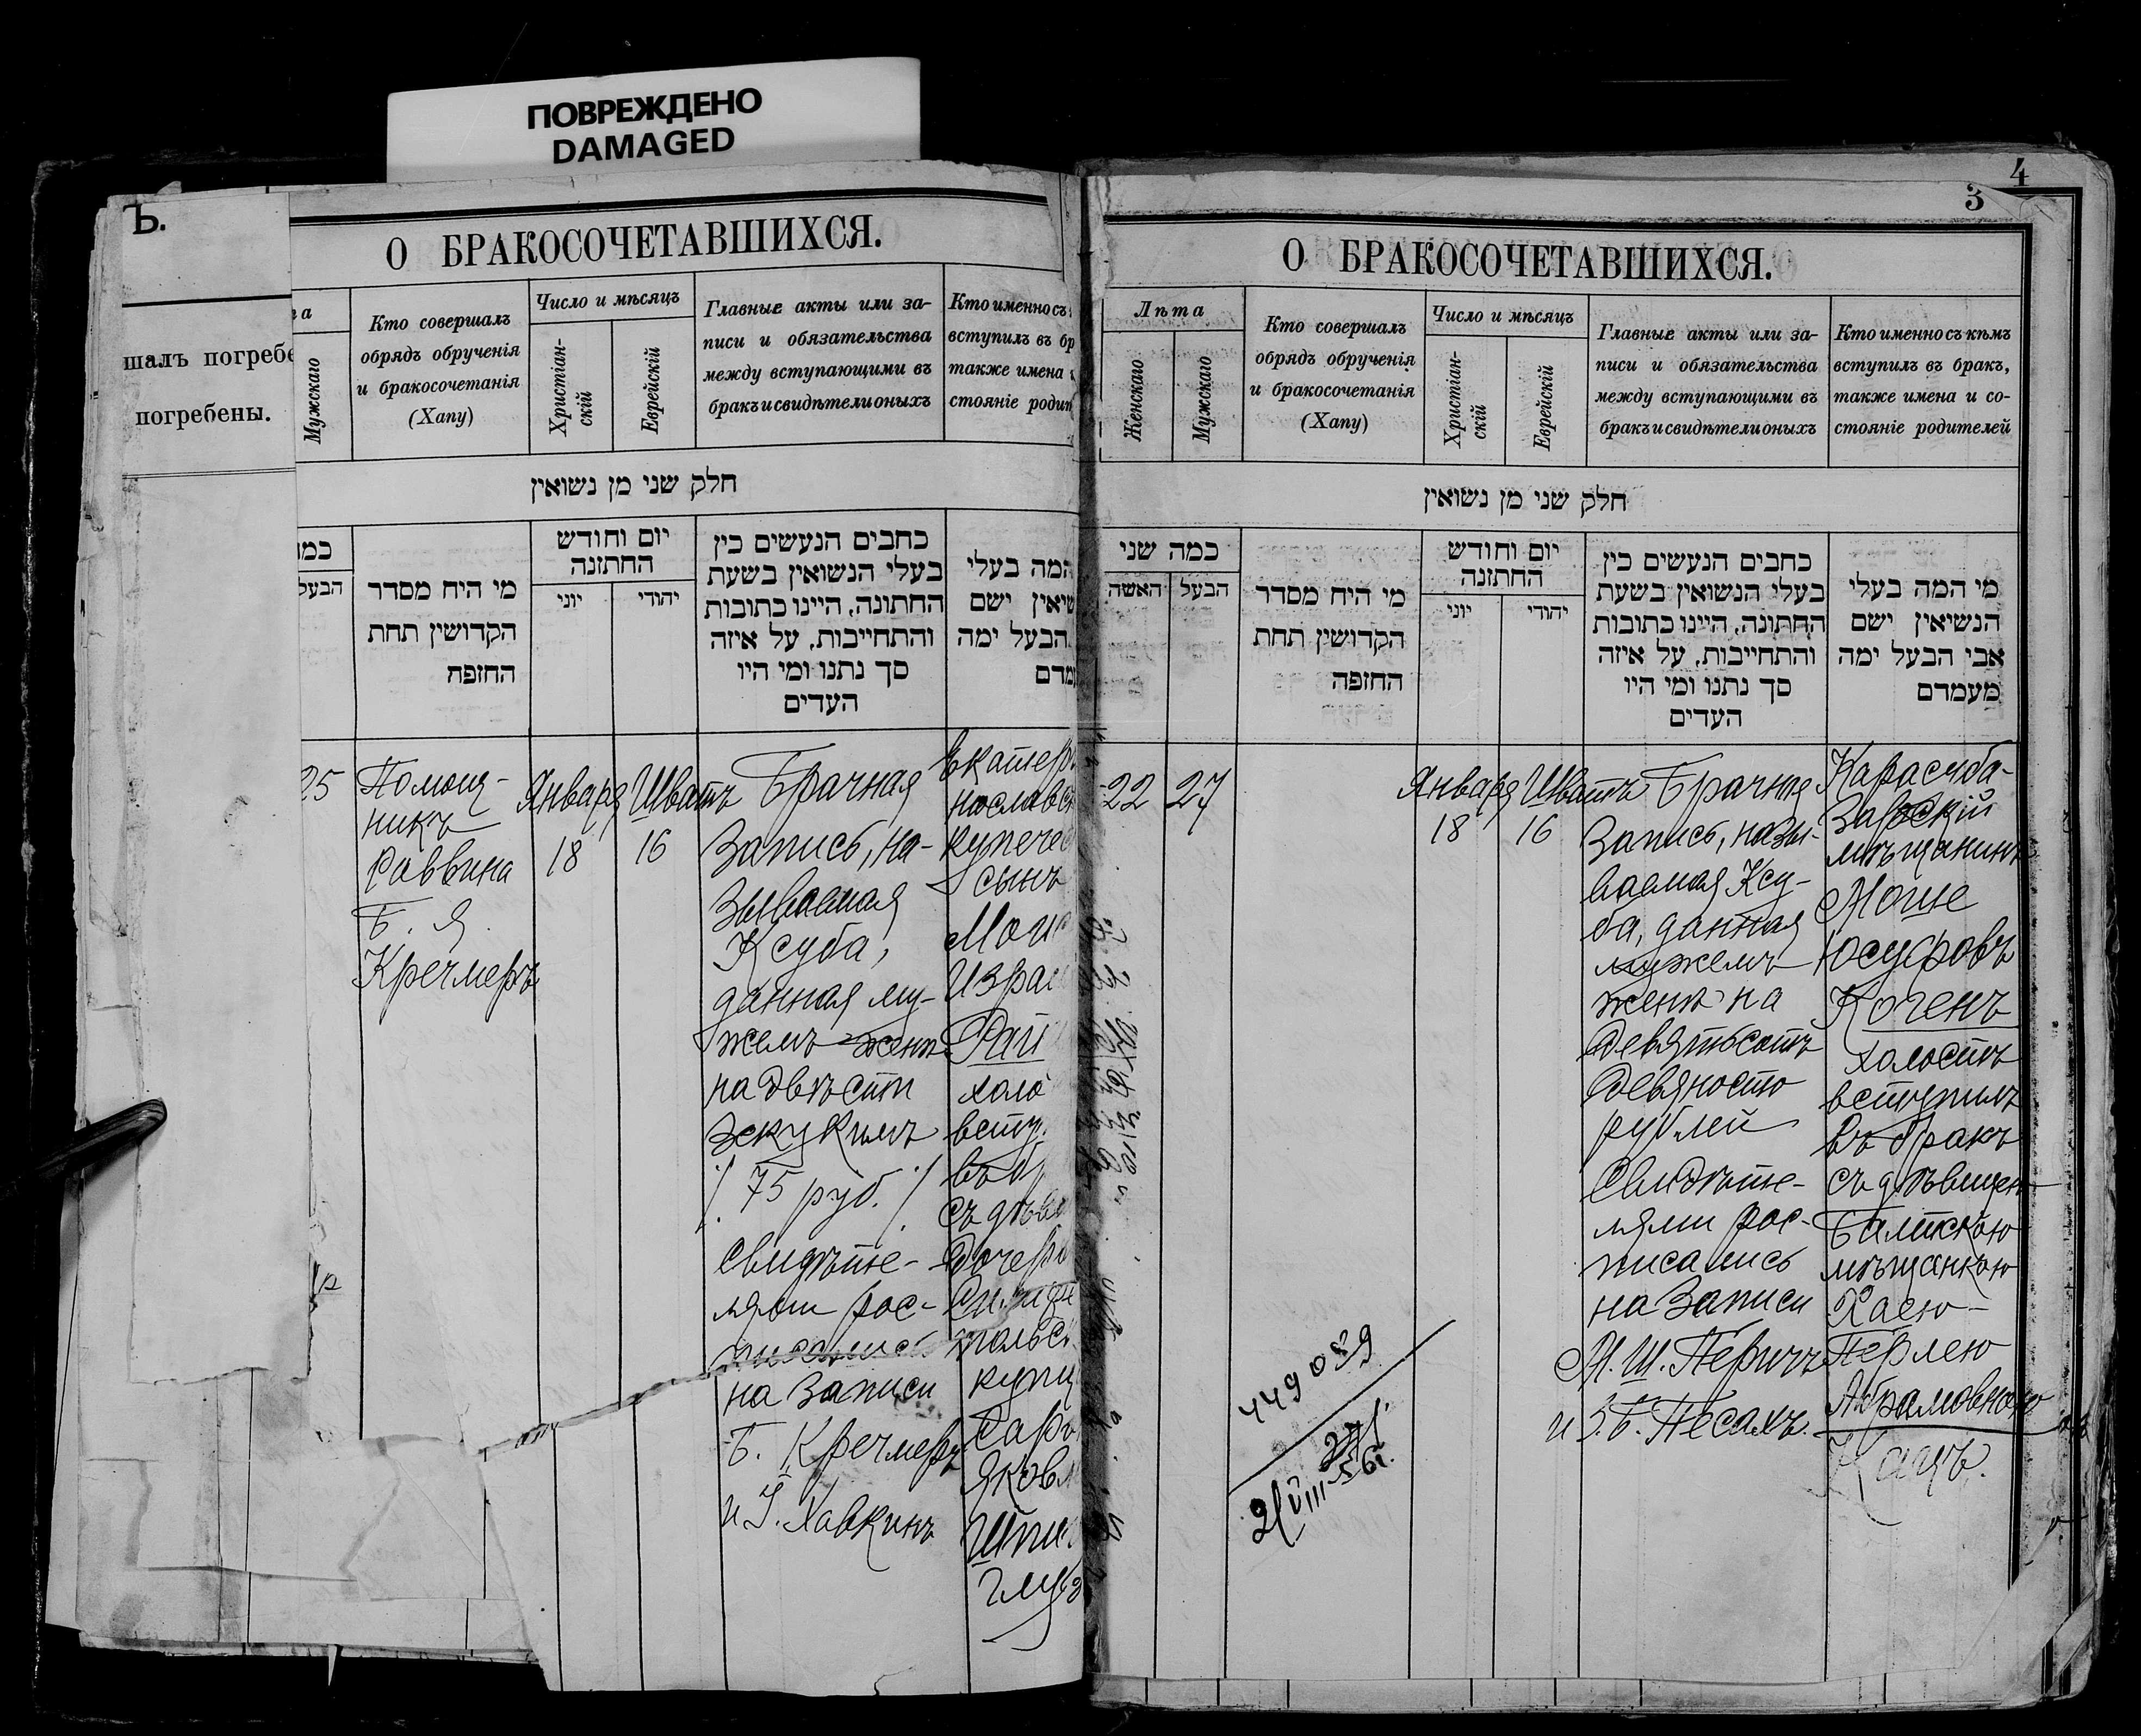 ПОВРЕЖДЕНО
DAMAGED
Ъ.
шалъ погребе
погребены.
О БРАКОСОЧЕТАВШИХСЯ.
та
Мужскаго
Кто совершалъ
обрядъ обрученія
и бракосочетанія
(Хапу)
Число и мѣсяцъ
Христіан-
скій
Еврейскій
Главные акты или за-
писи и обязательства
между вступающими въ
бракъ и свидѣтели оныхъ
Кто именно съ
вступилъ въ бр
также имена и
стояніе родит
חלק שני מן נשואין
כמה
הבעל
מי היח מסדר
הקדושין תחת
החופה
יום וחודש
החתונה
יוני
יהודי
כחבים הנעשים כין
בעלי הנשואין בשעת
החתונה, היינו כתובות
והתחייבות, על איזה
סך נתנו ומי היו
העדים
המה בעלי
שיאין ישם
הבעל ימה
מדם
25
Помощ-
никъ
Раввина
Б. Я.
Кречмеръ
Января
18
Шватъ
16
Брачная
Запись, на-
зываемая
Ксуба,
данная му-
жемъ женѣ
на двѣсти
зекукимъ
/. 75 руб. /.
Свидѣте-
лями рос-
писались
на Записи
Б. Кречмеръ
и І. Хавкинъ
Екатери
нославск
купечес
сынъ
Мои
Израи
Рай
холо
всту
въ бр
съ дѣви
дочерью
польс
купц
Сарр
Яковл
Шпи
глуз
4
3
О БРАКОСОЧЕТАВШИХСЯ.
Лѣта
Женскаго
Мужскаго
Кто совершалъ
обрядъ обрученія
и бракосочетанія
(Хапу)
Число и мѣсяцъ
Христіан-
скій
Еврейскій
Главные акты или за-
писи и обязательства
между вступающими въ
бракъ и свидѣтели оныхъ
Кто именно съ кѣмъ
вступилъ въ бракъ,
также имена и со-
стояніе родителей
חלק שני מן נשואין
כמה שני
האשה
הבעל
מי היח מסדר
הקדושין תחת
החופה
יום וחודש
החתונה
יוני
יהודי
כחבים הנעשים כין
בעלי הנשואין בשעת
החתונה, היינו כתובות
והתחייבות, על איזה
סך נתנו ומי היו
העדים
מי המה בעלי
הנשיאין ישם
אבי הבעל ימה
מעמדם
22
27
Января
18
Шватъ
16
Брачная
Запись, назы-
ваемая Ксу-
ба, данная
мужемъ
женѣ на
девятьсотъ
девяносто
рублей
Свидѣте-
лями рос-
писались
на Записи
М. Ш. Перичъ
и З. Б. Песахъ.
Карасуба-
зарскій
мѣщанинъ
Моше
Юсуфовъ
Коченъ
холостъ
вступилъ
въ бракъ
съ дѣвицею
Балтскою
мѣщанкою
Хаею-
Перлею
Абрамовною
Кацъ.
449 039
21/VIII-56г.